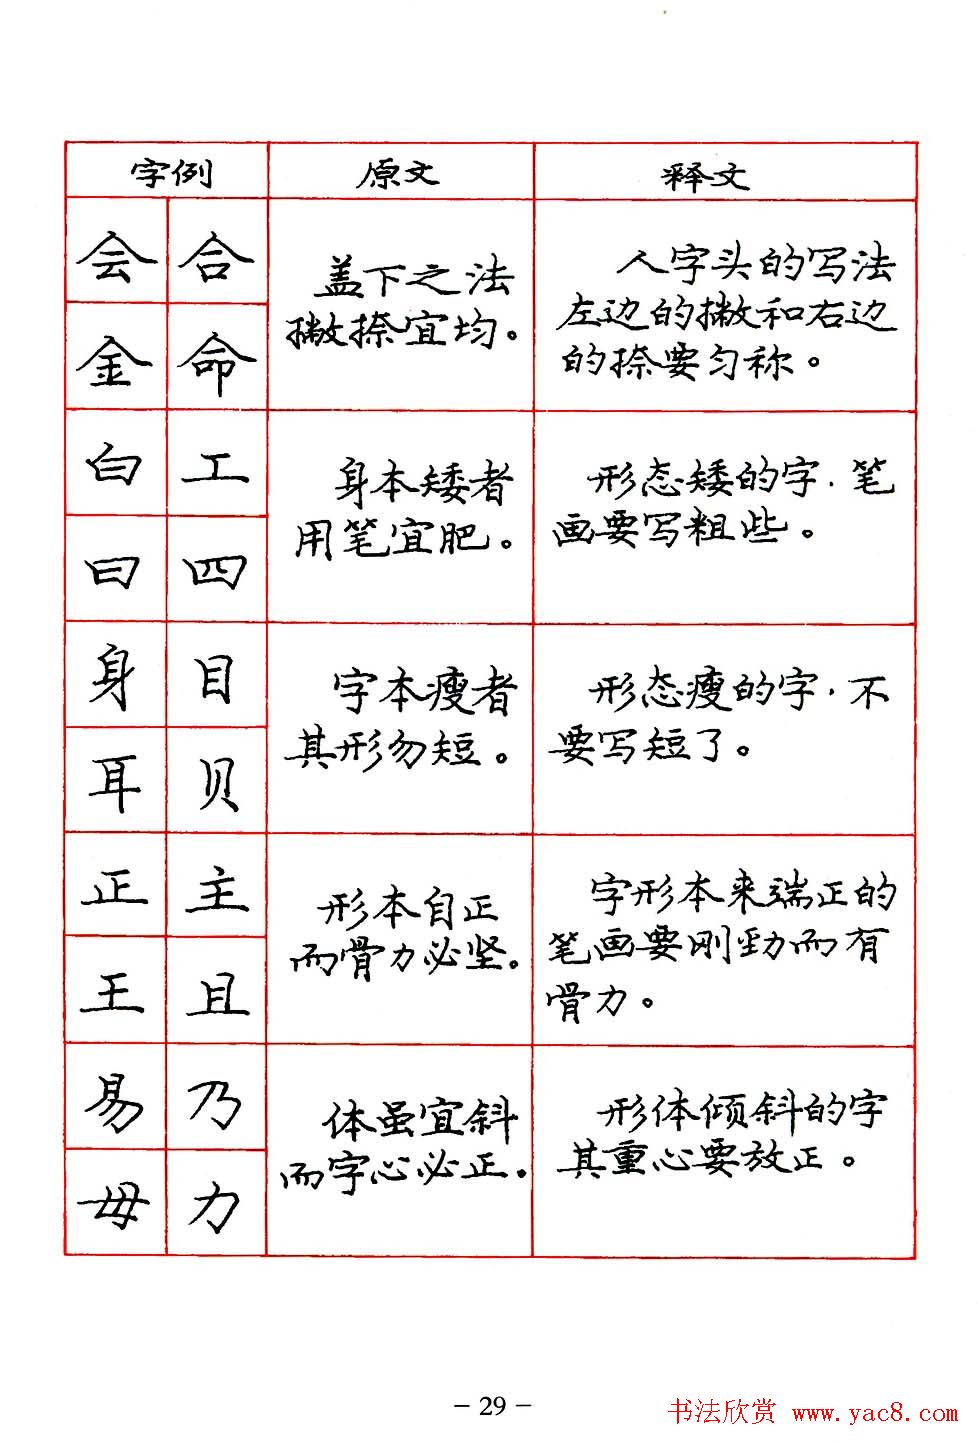 字例 原文 释文
会 合
盖下之法
撇捺宜均。
人字头的写法
左边的撇和右边
的捺要匀称。
金 命
白 工
身本矮者
用笔宜肥。
形态矮的字，笔
画要写粗些。
曰 四
身 目
字本瘦者
其形勿短。
形态瘦的字，不
要写短了。
耳 贝
正 主
形本自正
而骨力必坚。
字形本来端正的
笔画要刚劲而有
骨力。
王 且
易 乃
体虽宜斜
而字心必正。
形体倾斜的字
其重心要放正。
毋 力
- 29 -
书法欣赏 www.yac8.com